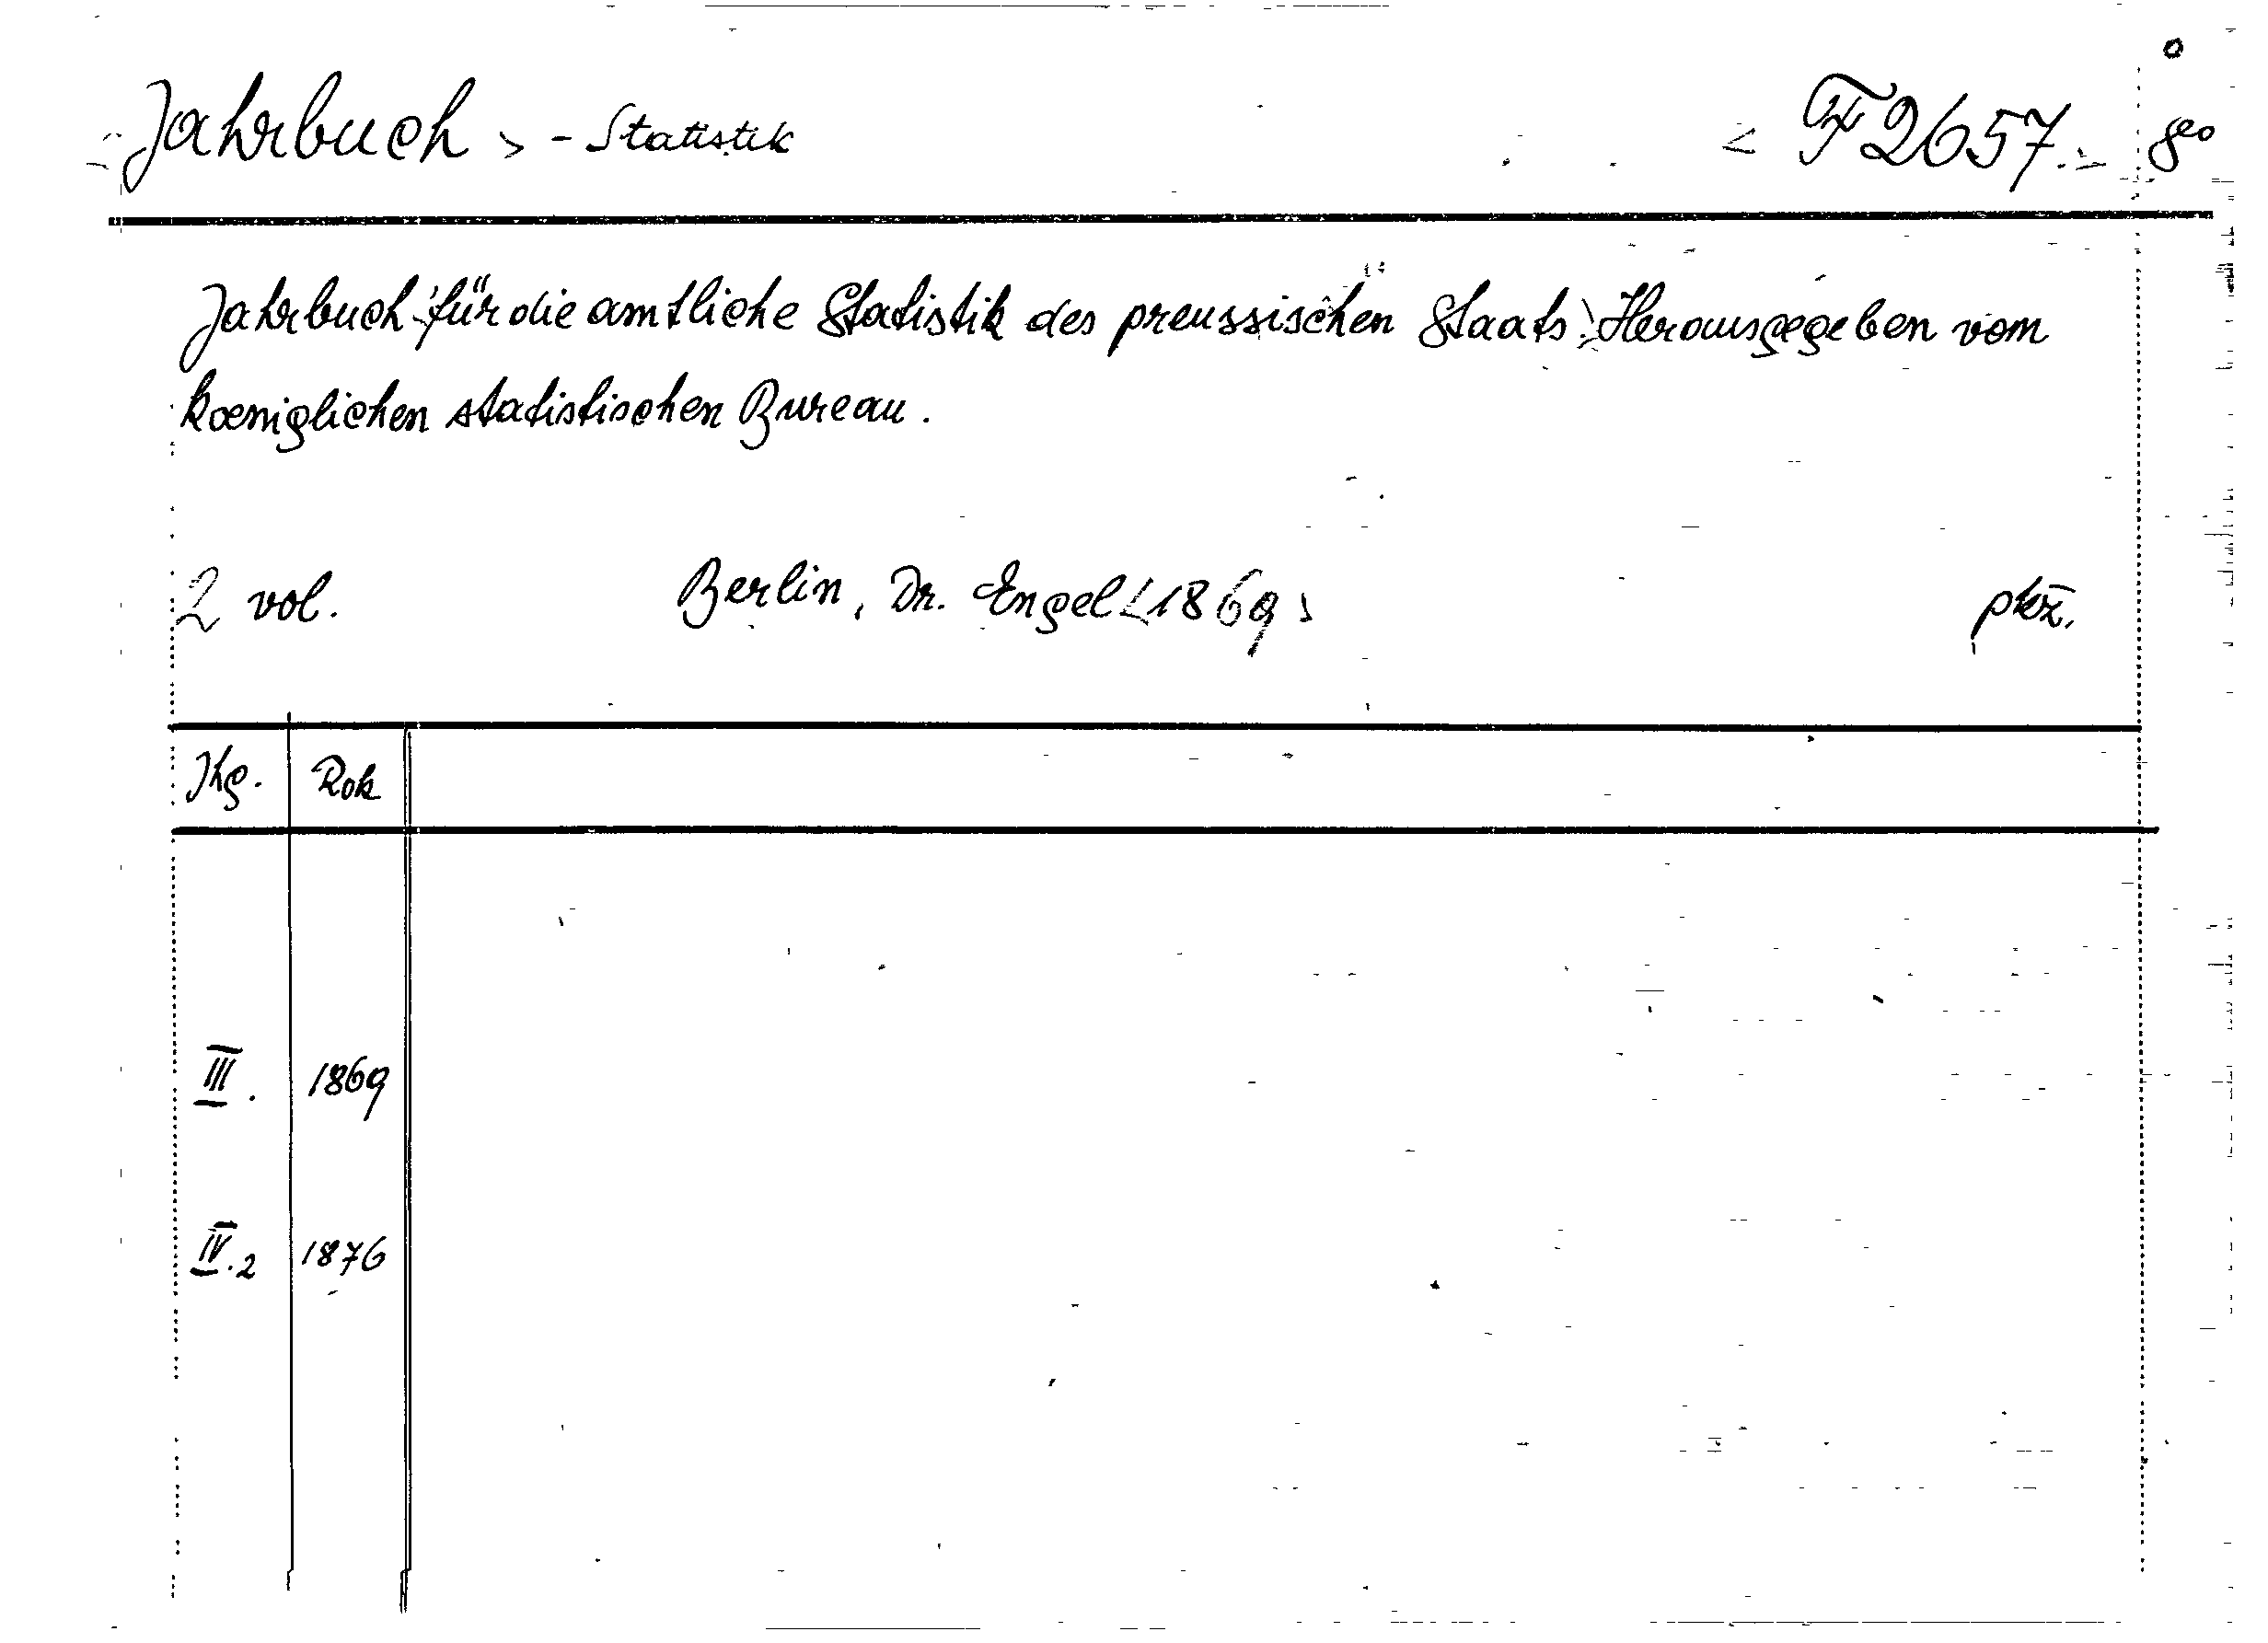 Jahrbuch > - Statistik < F 2657. > 8°
Jahrbuch für die amtliche Statistik des preussischen Staats. Herausgegeben vom
koeniglichen statistischen Bureau.
2 vol. Berlin, Dr. Engel <1869> ptž.
Jhg. Rok
III. 1869
IV.2 1876